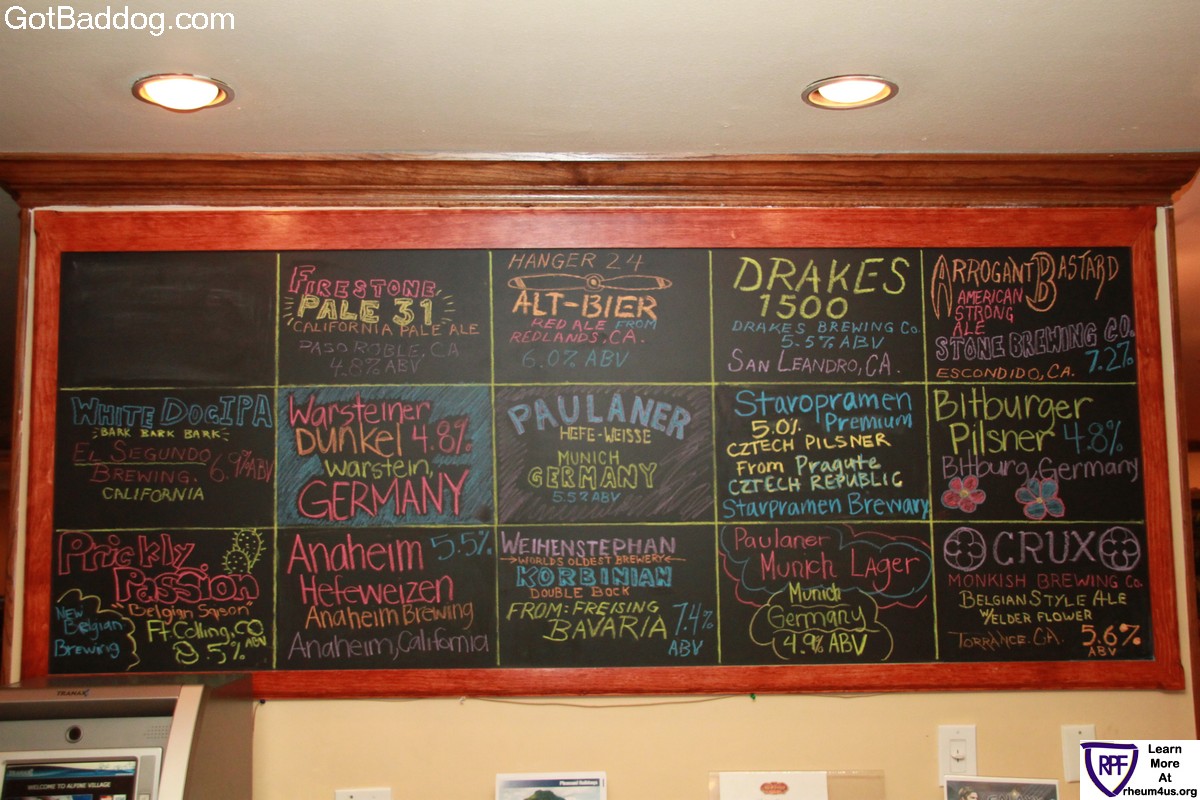 GotBaddog.com
FIRESTONE
PALE 31
CALIFORNIA PALE ALE
PASO ROBLE, CA
4.8% ABV
HANGER 24
ALT-BIER
RED ALE FROM
REDLANDS, CA.
6.0% ABV
DRAKES
1500
DRAKES BREWING CO.
5.5% ABV
SAN LEANDRO, CA.
ARROGANT BASTARD
AMERICAN
STRONG
ALE
STONE BREWING CO.
ESCONDIDO, CA. 7.2%
WHITE DOG IPA
BARK BARK BARK
EL SEGUNDO
BREWING. 6.9% ABV
CALIFORNIA
Warsteiner
Dunkel 4.8%
Warstein,
GERMANY
PAULANER
HEFE-WEISSE
MUNICH
GERMANY
5.5% ABV
Staropramen
5.0% Premium
CZTECH PILSNER
From Pragute
CZTECH REPUBLIC
Starpramen Brewary
Bitburger
Pilsner 4.8%
Bitburg, Germany
Prickly
Passion
"Belgian Saison"
New
Belgian
Brewing
Ft. Colling, CO
8.5% ABV
Anaheim 5.5%
Hefeweizen
Anaheim Brewing
Anaheim, California
WEIHENSTEPHAN
WORLDS OLDEST BREWERY
KORBINIAN
DOUBLE BOCK
FROM: FREISING
BAVARIA 7.4%
ABV
Paulaner
Munich Lager
Munich
Germany
4.9% ABV
CRUX
MONKISH BREWING CO.
BELGIAN STYLE ALE
W/ELDER FLOWER
TORRANCE, CA. 5.6%
ABV
TRAMAX
WELCOME TO ALPINE VILLAGE
RPF
Learn
More
At
rheum4us.org